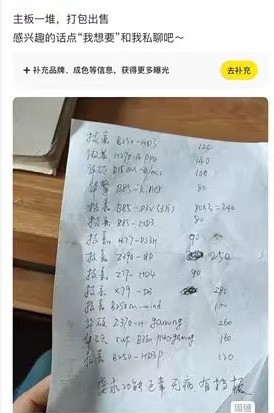 主板一堆，打包出售
感兴趣的话点“我想要”和我私聊吧～
+ 补充品牌、成色等信息，获得更多曝光
去补充
技嘉 B250-HD3 120
140
100
B85-K.NET 80
技嘉 B85-D3V(3片) 80×3=240
技嘉 B85-HD3 80
技嘉 H77-DS3H 90
技嘉 Z390-UD 250
技嘉 Z77-HD4 90
技嘉 X79-UD3 280
技嘉 B250M-wind 100
华硕 Z370-H gaming 260
华硕 TUF B360 gaming 160
技嘉 B250-HD3P 120
要求功能正常 无病 有挡板